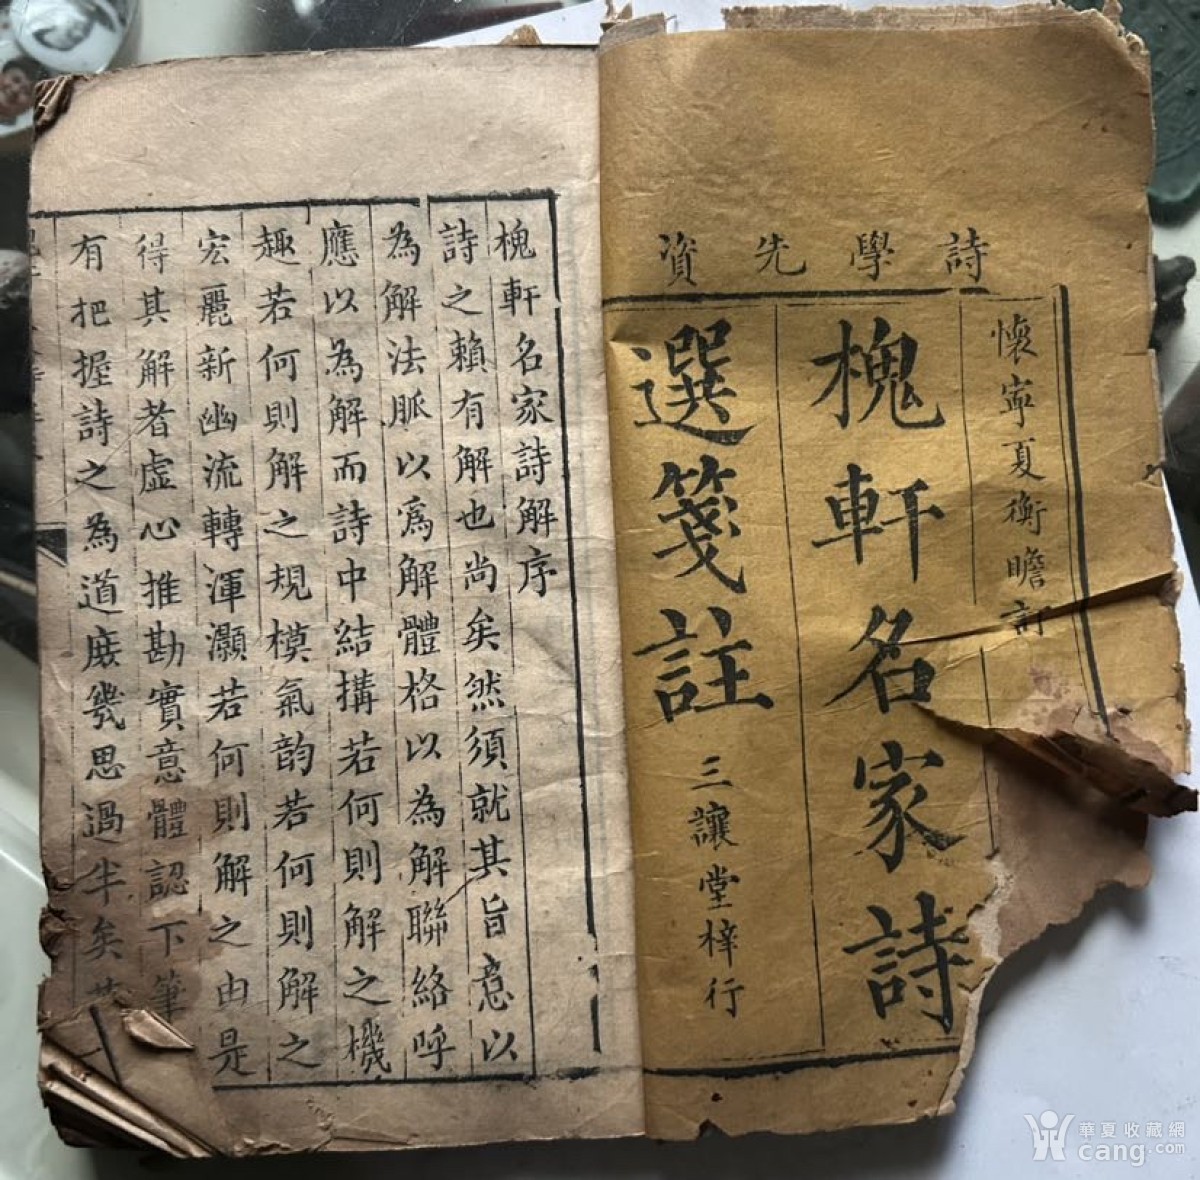 詩學先資
懷寧夏衡瞻訂
槐軒名家詩
選箋註
三讓堂梓行
槐軒名家詩解序
詩之賴有解也尚矣然須就其旨意以
為解法脈以爲解體格以為解聯絡呼
應以為解而詩中結搆若何則解之機
趣若何則解之規模氣韵若何則解之
宏麗新幽流轉渾灝若何則解之由是
得其解者虛心推勘實意體認下筆
有把握詩之為道庶幾思過半矣
華夏收藏網
cang.com